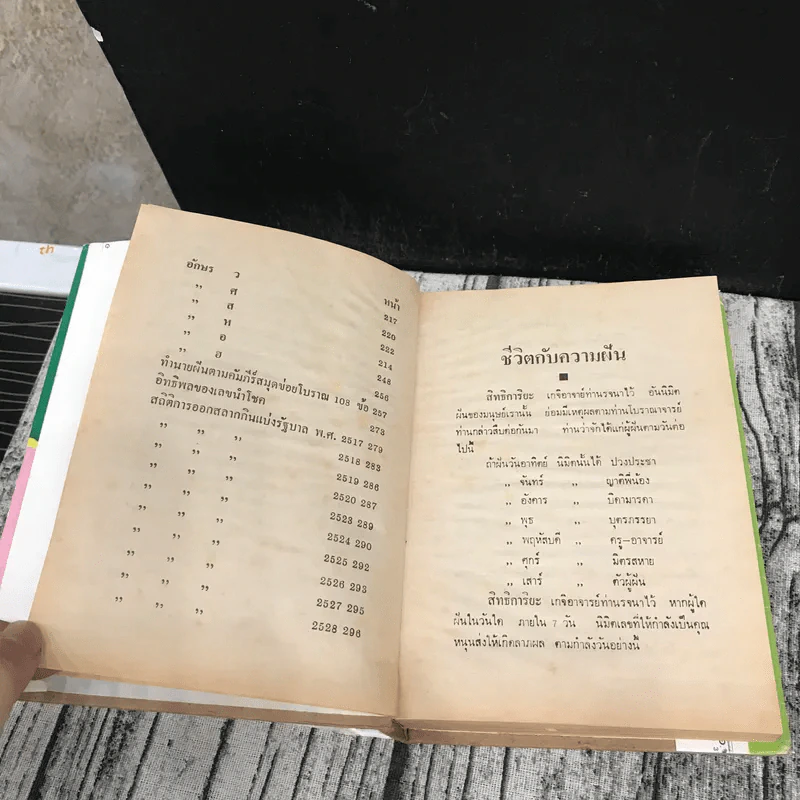 อักษร ว
,, ศ หน้า
,, ส 217
,, ห 220
,, อ 222
,, ฮ 214
248
ทำนายฝันตามคัมภีร์สมุดข่อยโบราณ 108 ข้อ 256
อิทธิพลของเลขนำโชค 257
สถิติการออกสลากกินแบ่งรัฐบาล พ.ศ. 2517 279
273
,, ,, ,, 2518 283
,, ,, ,, 2519 286
,, ,, ,, 2520 287
,, ,, ,, 2523 289
,, ,, ,, 2524 290
,, ,, ,, 2525 292
,, ,, ,, 2526 293
,, ,, ,, 2527 295
,, ,, ,, 2528 296
ชีวิตกับความฝัน
สิทธิการิยะ เกจิอาจาย์ท่านรจนาไว้ อันนิมิต
ฝันของมนุษย์เรานั้น ย่อมมีเหตุผลตามท่านโบราณาจารย์
ท่านกล่าวสืบต่อกันมา ท่านว่าจักได้แก่ผู้ฝันตามวันต่อ
ไปนี้
ถ้าฝันวันอาทิตย์ นิมิตนั้นได้ ปวงประชา
,, จันทร์ ,, ญาติพี่น้อง
,, อังคาร ,, บิดามารดา
,, พุธ ,, บุตรภรรยา
,, พฤหัสบดี ,, ครู–อาจารย์
,, ศุกร์ ,, มิตรสหาย
,, เสาร์ ,, ตัวผู้ฝัน
สิทธิการิยะ เกจิอาจารย์ท่านรจนาไว้ หากผู้ใด
ฝันในวันใด ภายใน 7 วัน นิมิตเลขที่ให้กำลังเป็นคุณ
หนุนส่งให้เกิดลาภผล ตามกำลังวันอย่างนี้